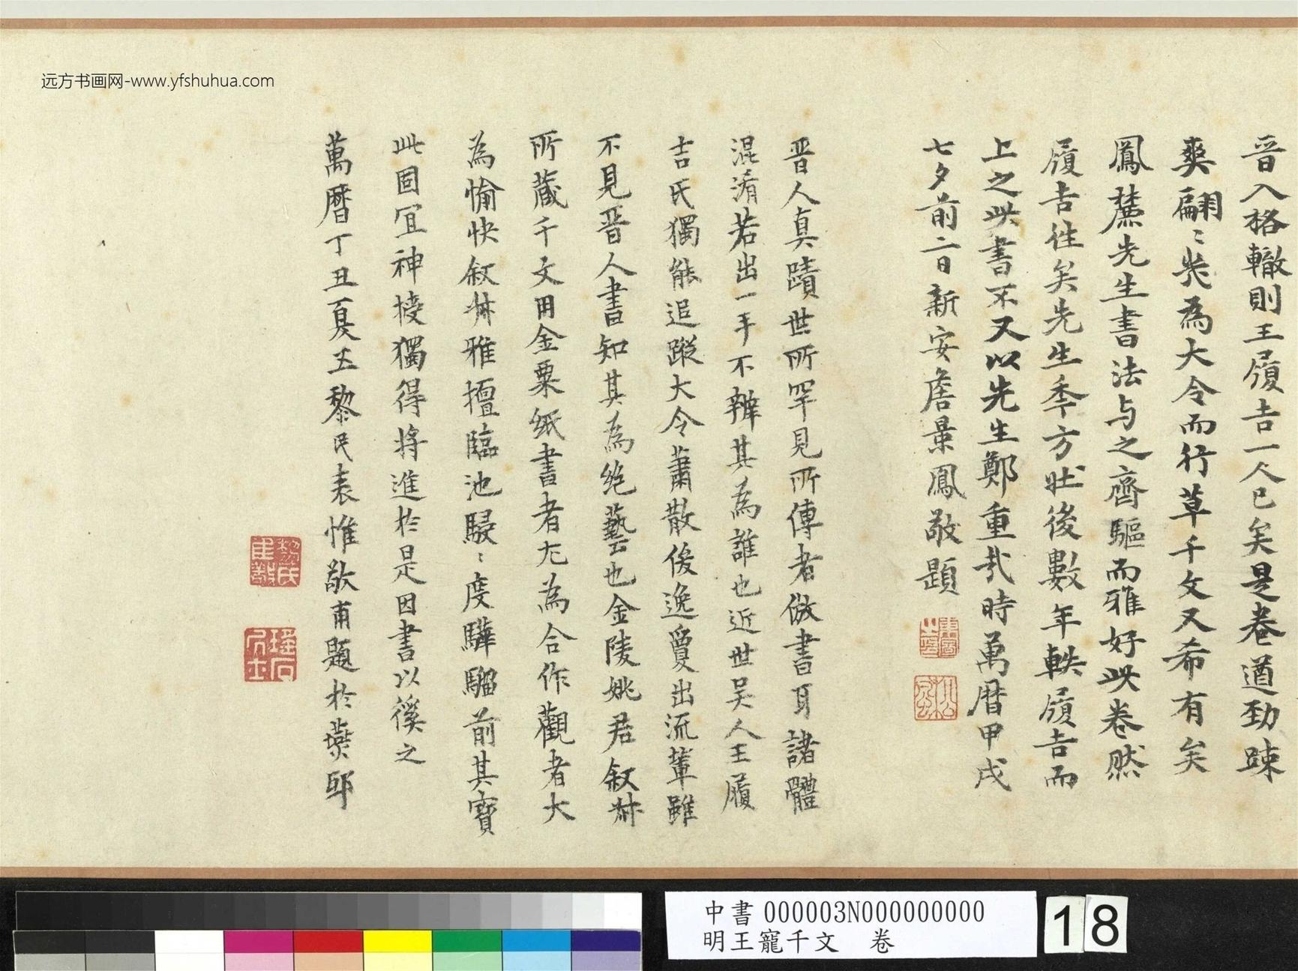 远方书画网-www.yfshuhua.com
晉入格轍則王履吉一人已矣是卷遒勁踈
爽翩〻出為大令而行草千文又希有矣
鳳麓先生書法与之齊驅而雅好此卷然
履吉往矣先生季方壯後數年軼履吉而
上之此書不又以先生鄭重哉時萬曆甲戌
七夕前二日新安詹景鳳敬題
晉人真蹟世所罕見所傳者倣書耳諸體
混淆若出一手不辨其為誰也近世吳人王履
吉氏獨能追蹤大令蕭散俊逸敻出流輩雖
不見晉人書知其為絶藝也金陵姚君叙卿
所藏千文用金粟紙書者尤為合作觀者大
為愉快叙卿雅擅臨池駸〻度驊騮前其寶
此固宜神揍獨得將進於是因書以徯之
萬曆丁丑夏五黎民表惟敬甫題於燕邸
中書 000003N000000000
明王寵千文 卷
18